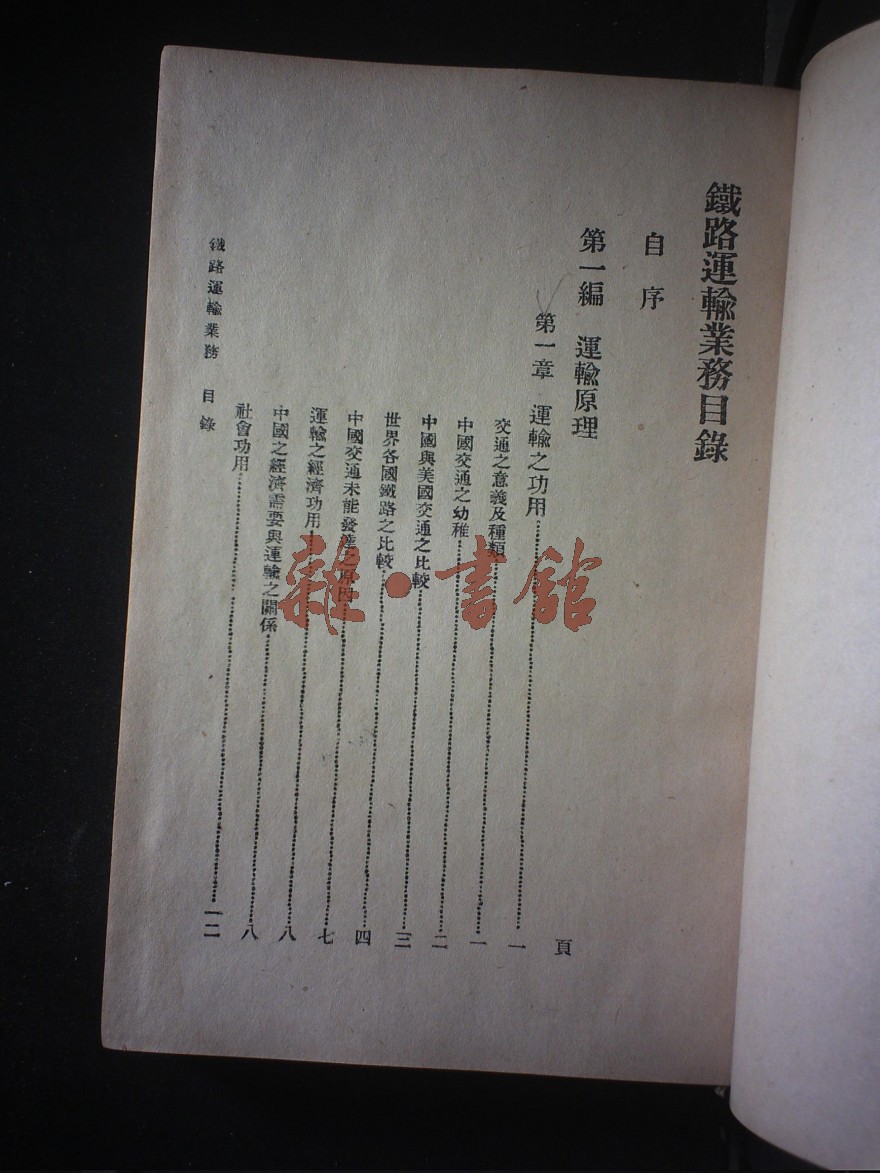 鐵路運輸業務目錄
自序
第一編 運輸原理
頁
第一章 運輸之功用……一
交通之意義及種類……一
中國交通之幼稚……二
中國與美國交通之比較……三
世界各國鐵路之比較……四
中國交通未能發達之原因……七
運輸之經濟功用……八
中國之經濟需要與運輸之關係……八
社會功用……一二
鐵路運輸業務 目錄
雜·書館